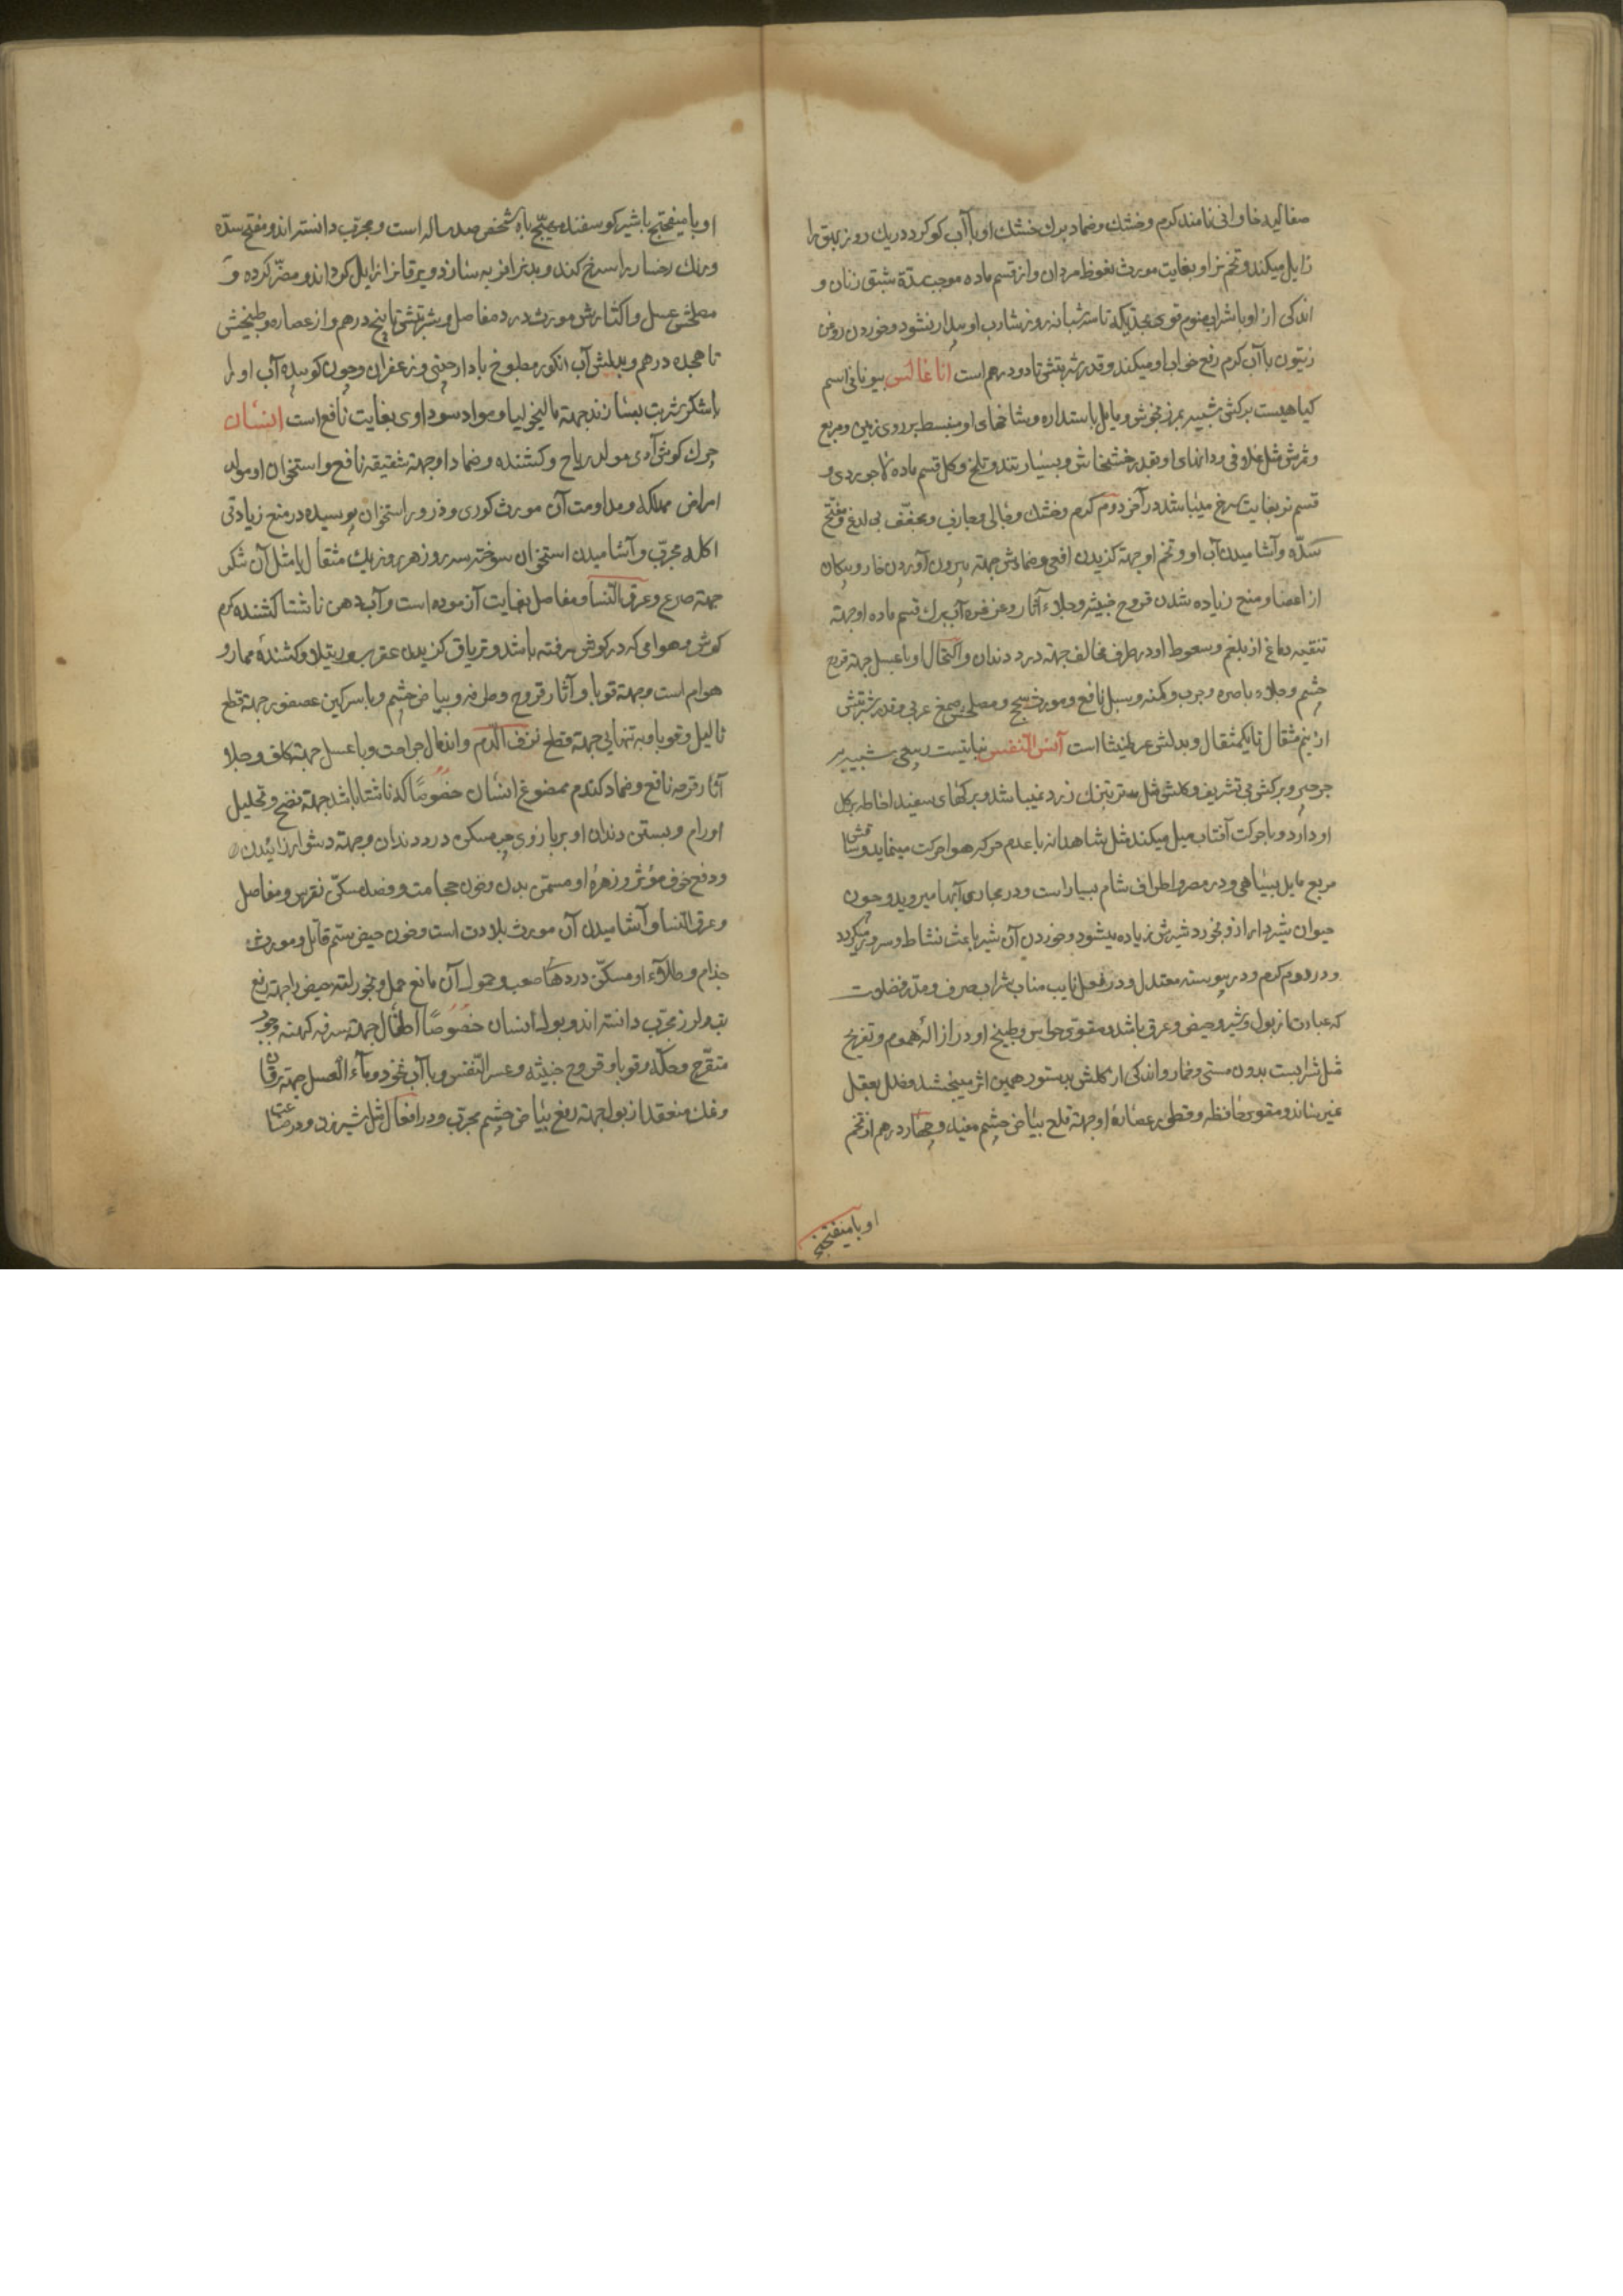 صغالید خاوانی نامند کرم وخشك وضماد برك خشك او با آب کوکرد دریك روز بهق را
زایل میکند وتخم نر او بغایت مورث نعوظ مردان واز قسم ماده موجب شدة شبق زنان و
اندکی از او با شراب منوم قوی بحدیکه تا سه شبانه روز شارب او بیدار نشود وخوردن روغن
زیتون با آب کرم رفع خواب او میکند وقدر شربتش تا دو درهم است اناغالس بیونانی اسم
کیاهیست برکش شبیه بمرزنجوش ومایل باستداره وشاخهای او منبسط بر روی زمین ومربع
وثمرش مثل غلافی ودانهای او بقدر خشخاش وبسیار تند وتلخ وکل قسم ماده لاجوردی و
قسم نر بغایت سرخ میباشد در آخر دوم کرم وخشك وجالی وجاذب ومجفّف بی لدغ ومفتح
سدّه وآشامیدن آب او وتخم او جهته کزیدن افعی وضمادش جهته بیرون آوردن خار وپیکان
از اعضا ومنع زیاده شدن قروح خبیثه وجلاء آثار وغرغره آب برك قسم ماده او جهته
تنقیه دماغ از بلغم وسعوط او در طرف مخالف جهته درد دندان واکتحال او با عسل جهته قرحه
چشم وجلاء باصره وجرب وکمنه وسبل نافع ومورث سحج ومصلحش صمغ عربی وقدر شربتش
از نیم مثقال تا یکمثقال وبدلش عرطنیثا است آنس النفس نباتیست ربیعی شبیه بر
جرجیر وبرکش بی تشریف وکلش مثل مرتبتک زرد میباشد وبرکهای سفید احاطه بر کل
او دارد وباحرکت آفتاب میل میکند مثل شاهدانه با عدم حرکه هوا حرکت مینماید وساقش
مربع مایل بسیاهی ودر مصر واطراف شام بسیار است ودر مجاری آبها میروید وچون
حیوان شیردار از او بخورد شیرش زیاده میشود وخوردن آن شیر باعث نشاط وسرور میکردد
ودر دوم کرم ودر یبوسته معتدل ودر فعل نایب مناب شراب صرف ومدر فضلات
که عبارت از بول وشیر وحیض وعرق باشد ومقوی حواس وطبیخ او در ازالهٔ هموم وتفریح
مثل شرابست بدون مستی وخمار واندکی از کلش بدستور همین اثر میبخشد وخلل بعقل
نمیرساند ومقوی حافظه وقطور عصارهٔ او جهته قلع بیاض چشم مفید وچهار درهم از تخم
او با میفختج
او با میفختج با شیر کوسفند مهیّج باه شخص صد ساله است ومجرّب دانسته اند ومفتح سدّه
ورنك رخسار را سرخ کند وبدنرا فربه سازد ویرقانرا زایل کوداند ومضرّ کرده و
مصلحش عسل واکثارش مورث درد مفاصل وشربتش تا پنج درهم واز عصاره وطبیخش
تا هجده درهم وبدلش آب انکور مطبوخ با دارچینی وزعفران وچون کوبیده آب او را
با شکر شربت بسازند جهته مالیخولیا ومواد سوداوی بغایت نافع است انسان
چرك کوش آدمی مولد ریاح وکشنده وضماد او جهته شقیقه نافع واستخوان او مولد
امراض مهلکه ومداومت آن مورث کوری وذرور استخوان پوسیده در منع زیادتی
اکله مجرّب وآشامیدن استخوان سوخته سه روز هر روز یك مثقال با مثل آن شکر
جهته صرع وعرق النسا ومفاصل بغایت آزموده است وآب دهن ناشتا کشنده کرم
کوش وهوامی که در کوش رفته باشد وتریاق کزیدن عقرب ورتیلا وکشندهٔ مار و
هوام است وجهته قوبا وآثار قروح وطرفه وبیاض چشم وبا سرکین عصفور جهته قطع
ثالیل وقوبا وبه تنهایی جهته قطع نزف الدم واندمال جراحت وبا عسل جهته کلف وجلاو
آثار قرحه نافع وضماد کندم ممضوغ انسان خصوصًا که ناشتا باشد جهته نضج وتحلیل
اورام وبستن دندان او بر بازوی چپ مسکن درد دندان وجهته دشوار زائیدن
ودفع خوف مؤثر وزهرهٔ او مسمّن بدن وخون حجامت وفصد مسکّن نقرس ومفاصل
وعرق النسا وآشامیدن آن مورث بلادت است وخون حیض سم قاتل ومورث
جذام وطلاء او مسکّن دردها صعب وحمول آن مانع حمل وبخور لته حیض را جهته رفع
تب ولرز مجرّب دانسته اند وبول انسان خصوصًا اطفال جهته سرفه کهنه وجرب
متقرّح وحکّه وقوبا وقروح خبیثه وعسر النّفس وبا آب نخود وماء العسل جهته یرقان
ونمك منعقد از بول جهته رفع بیاض چشم مجرّب ودر افعال مثل شیرزق ومرصاعت